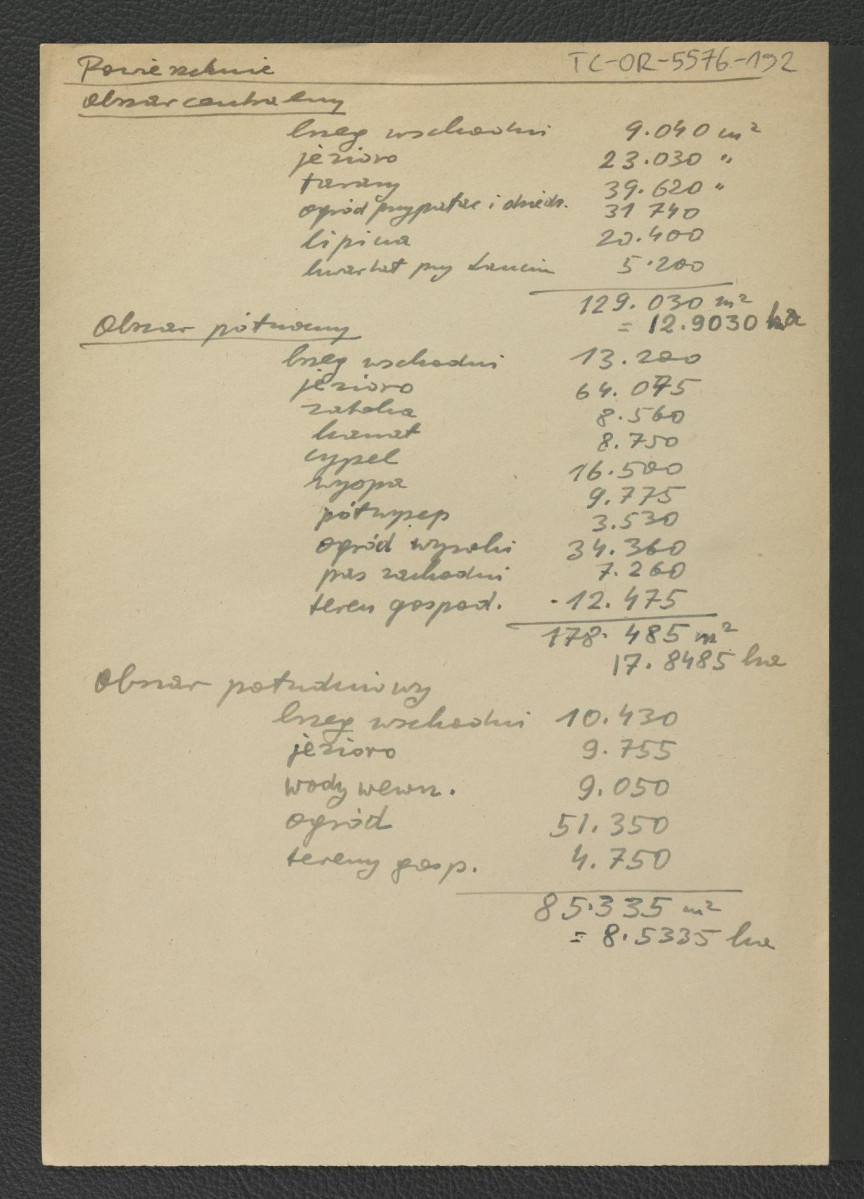 Powierzchnie TC-OR-5576-192
Obszar centralny
brzeg wschodni 9.040 m²
jezioro 23.030 "
tarasy 39.620 "
ogród przy pałac i dziedz. 31 740
lipina 20.400
kwartał przy 5.200
129.030 m²
= 12.9030 ha
Obszar północny
brzeg wschodni 13.200
jezioro 64.075
zatoka 8.560
kanał 8.750
cypel 16.500
wyspa 9.775
półwysep 3.530
ogród wysoki 34.360
pas zachodni 7.260
teren gospod. 12.475
178.485 m²
17.8485 ha
Obszar południowy
brzeg wschodni 10.430
jezioro 9.755
wody wewn. 9.050
ogród 51.350
tereny gosp. 4.750
85.335 m²
= 8.5335 ha